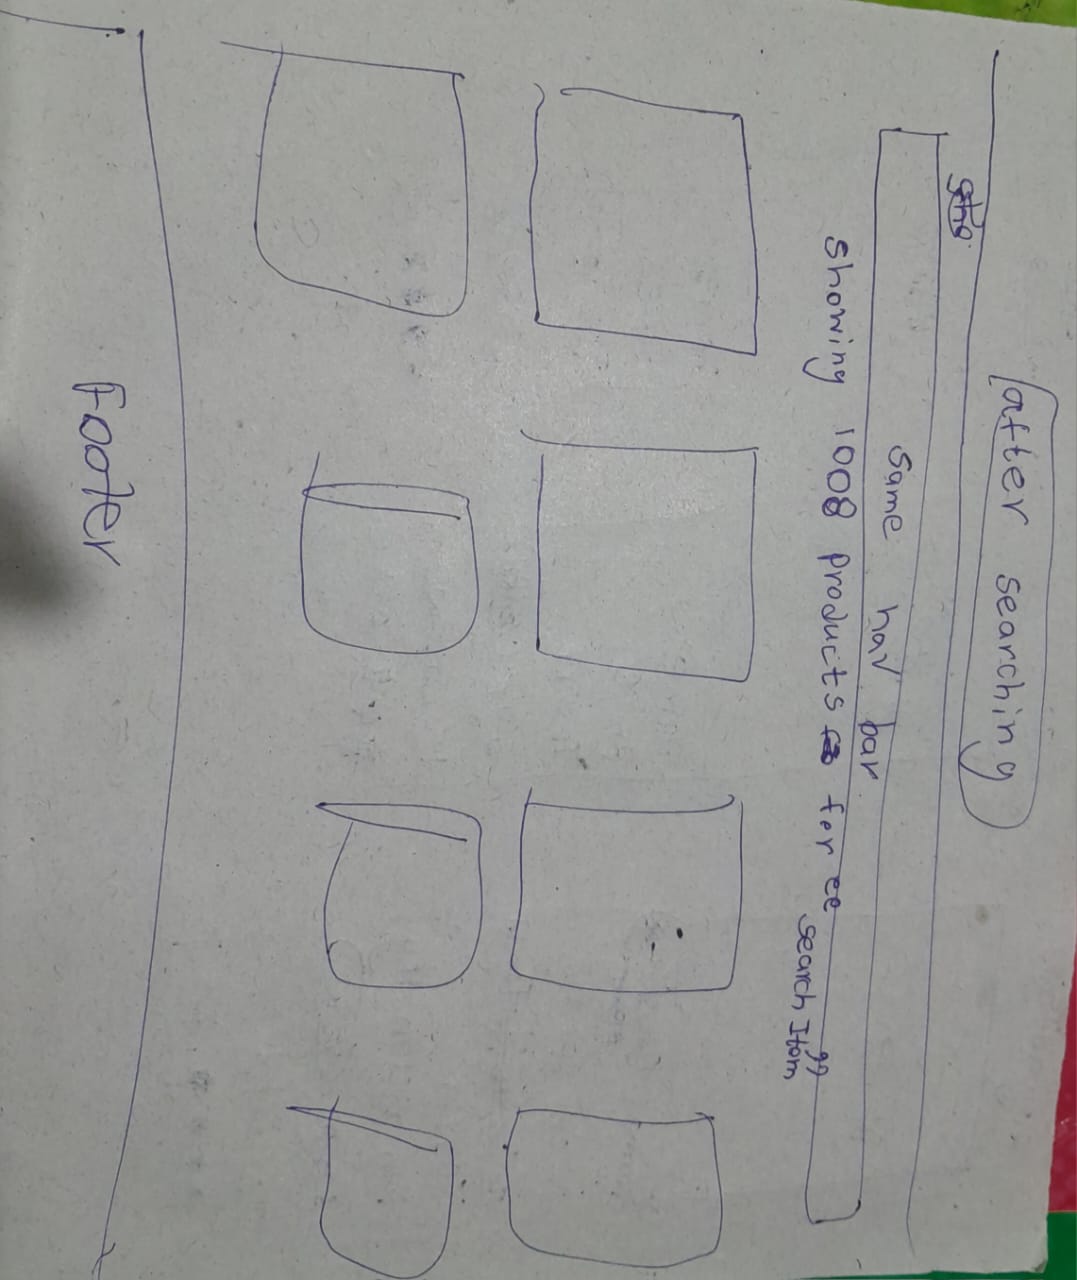 after searching
same nav bar
showing 1008 products for "search Item"
Footer